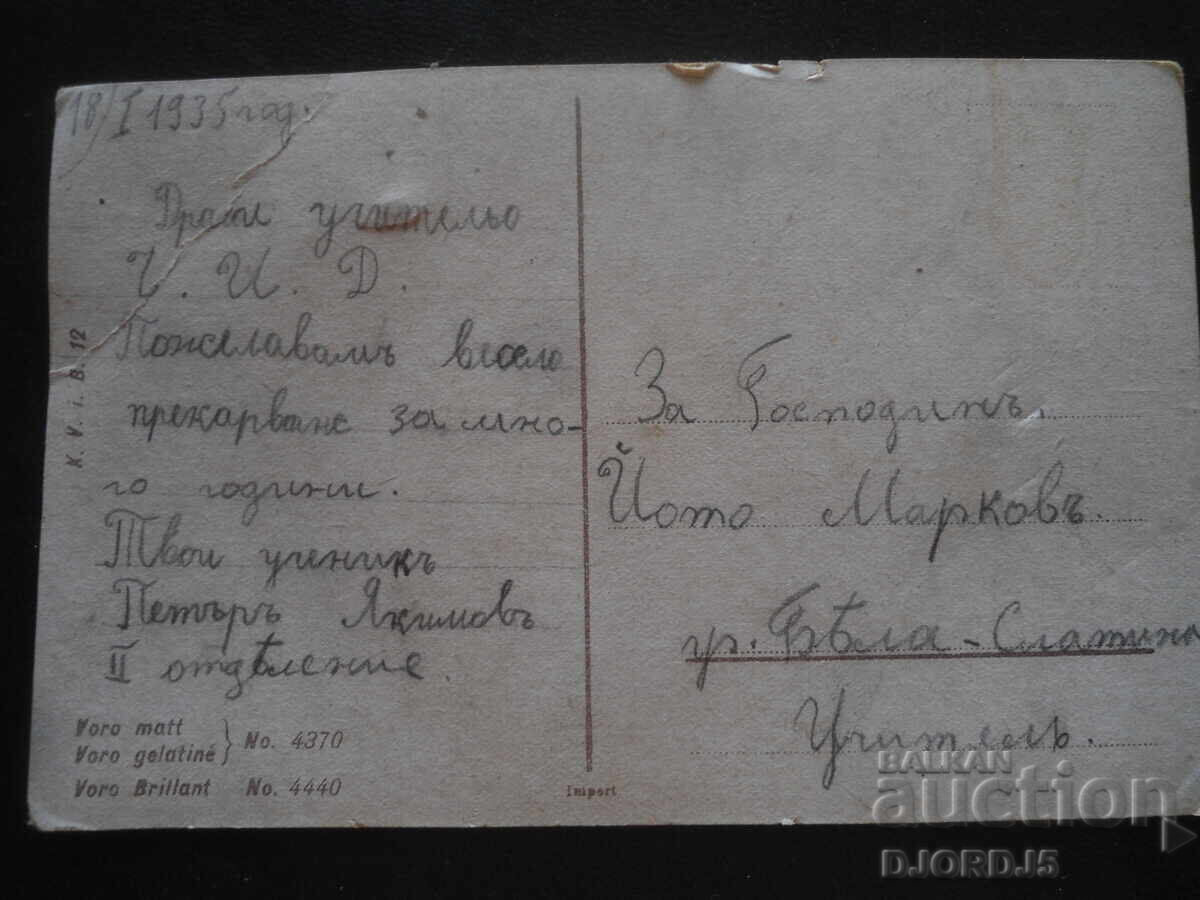 18/I 1935 год.
Драги учительо
Ч. И. Д.
Пожелавамъ весело
прекарване за мно-
го години.
Твои ученикъ
Петъръ Якимовъ
II отдѣление.
K. V. i. B. 12
Voro matt
Voro gelatiné } No. 4370
Voro Brillant No. 4440
Import
За Господинъ
Йото Марковъ.
гр. Бѣла-Слатина
Учитель.
BALKAN
auction
DJORDJ5